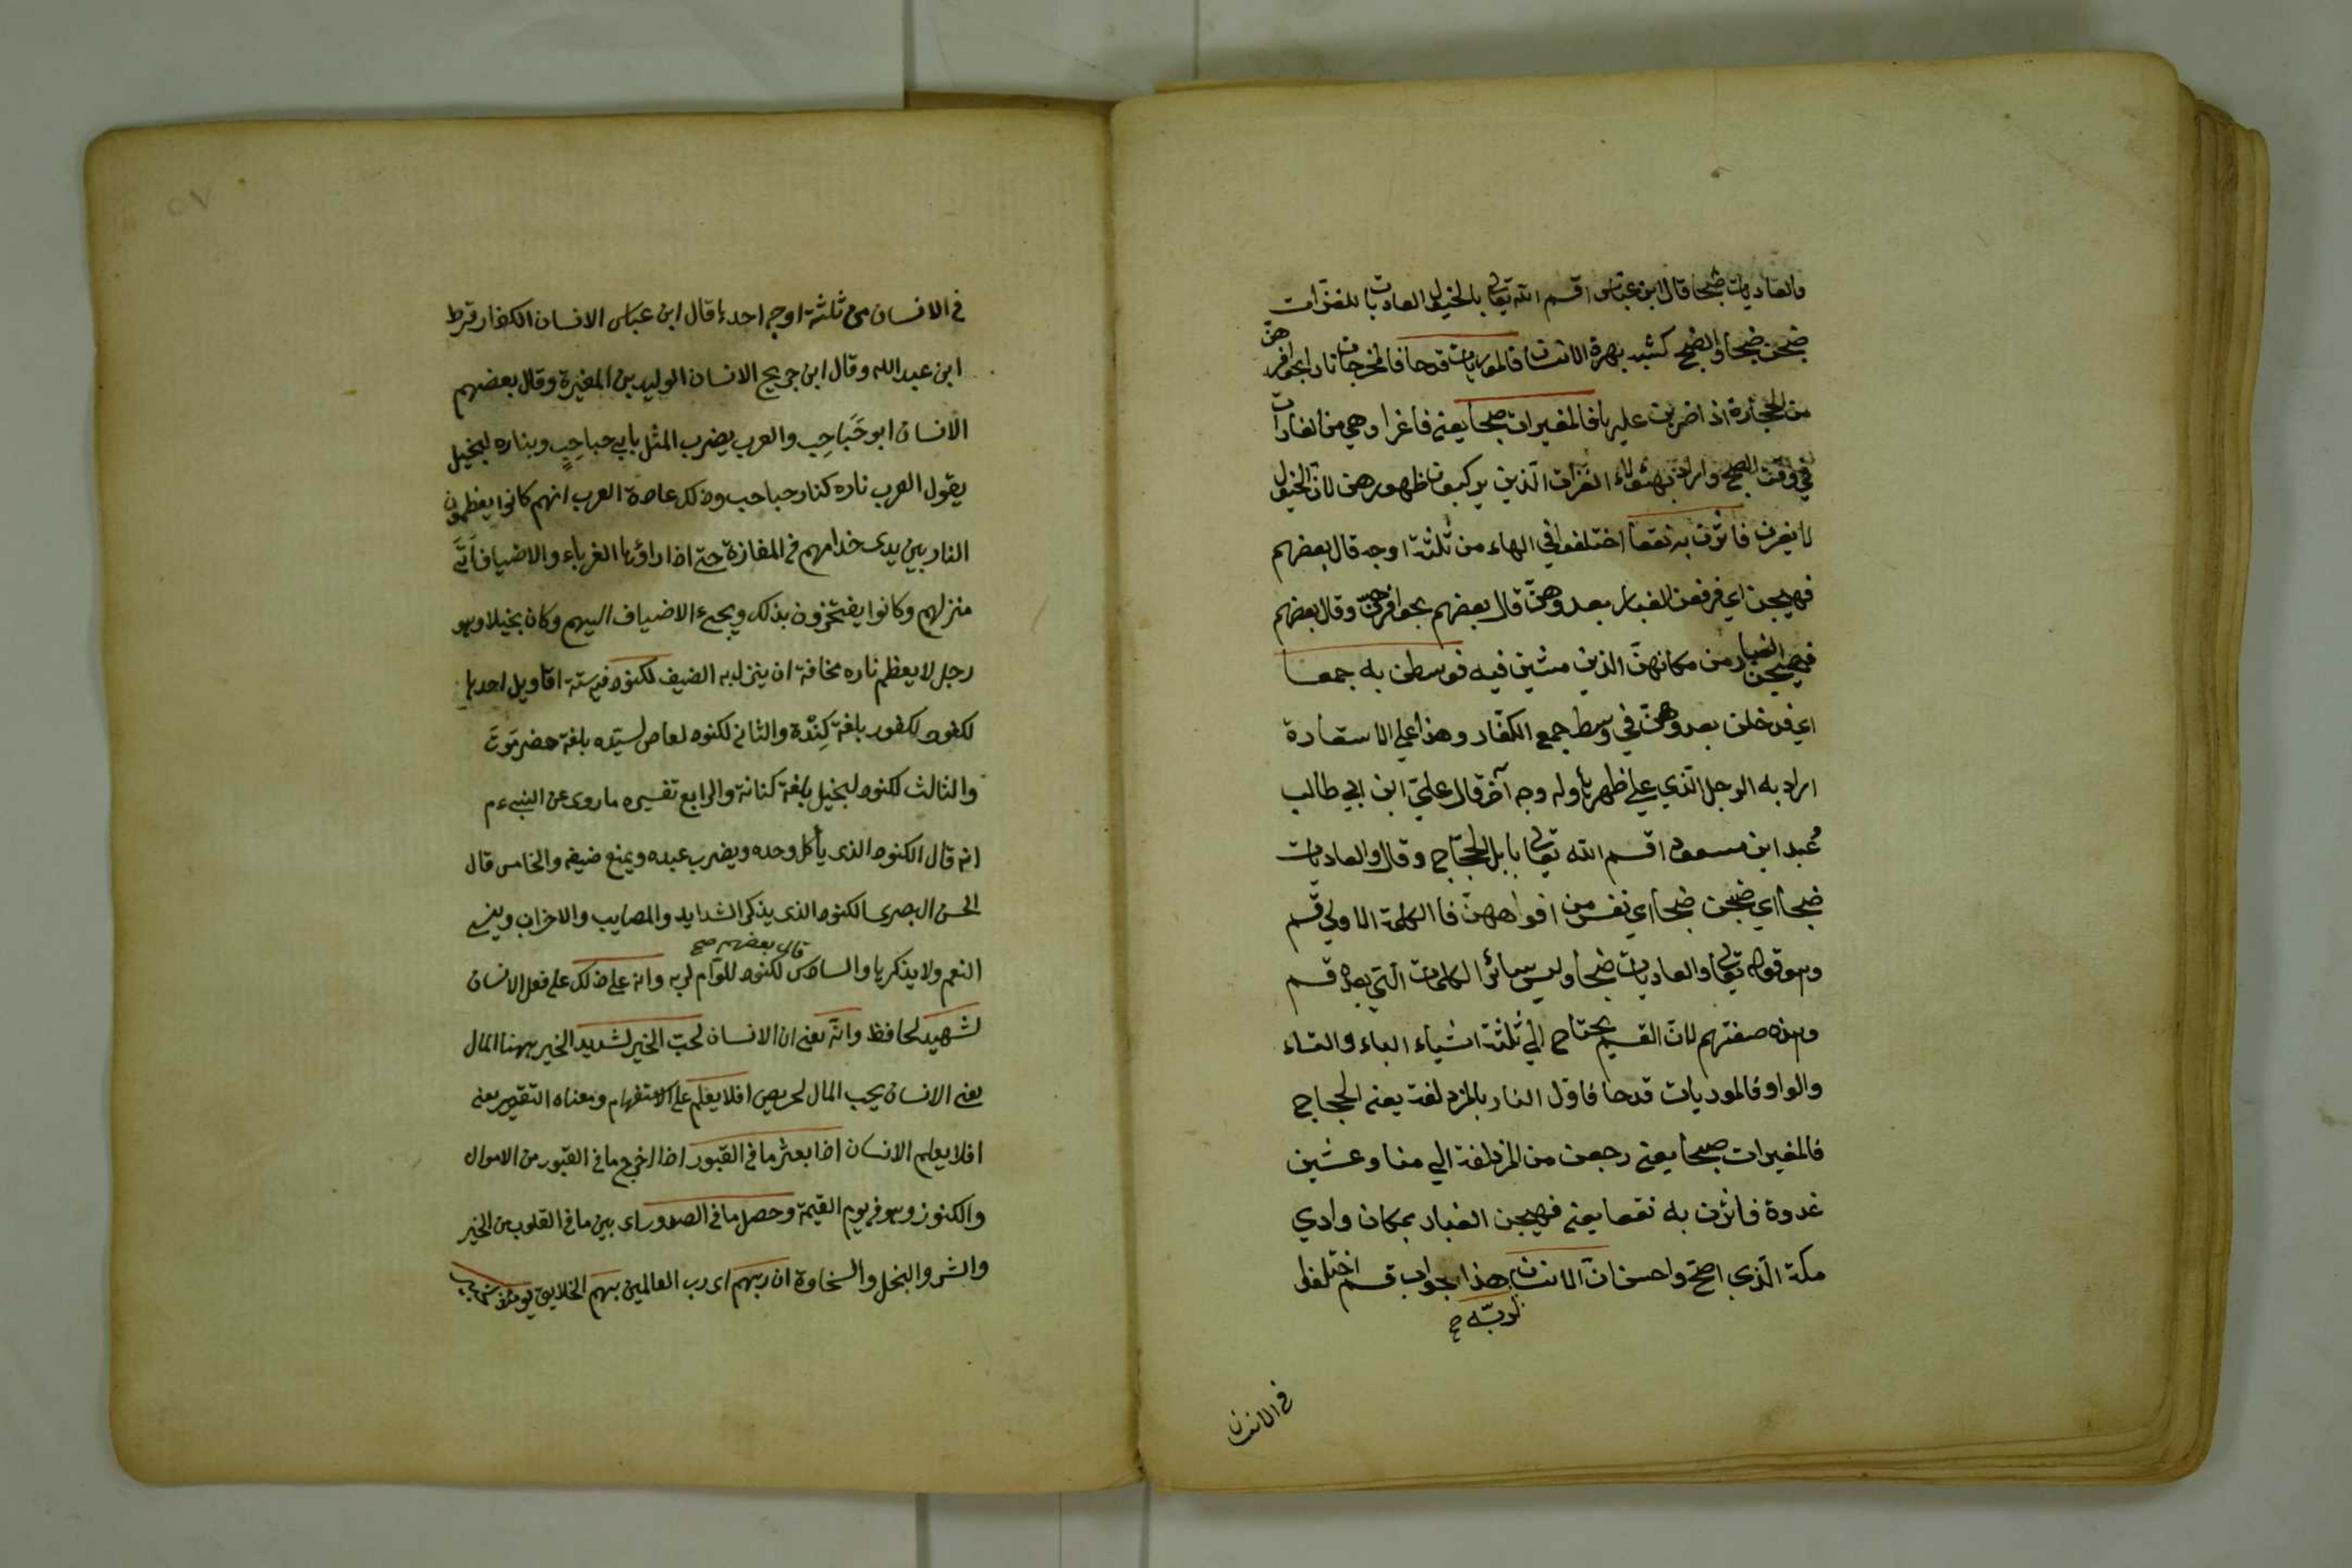 والعاديات ضبحا قال ابن عباس اقسم الله تعالى بالخيول العاديات بالغزات
ضبحن ضبحا والضبح كشبه بهرة الانسان فالموريات قدحا فالمخرجات نارا بحوافرهن
من الحجارة اذا ضربن عليها فالمغيرات صبحا يعني فاغرا وهي من الغارات
في وقت الصبح واراد بهؤلاء الغزات الذين يركبون ظهورهن لان الخيول
لا يغرن فاثرن به نقعا اختلفوا في الهاء من ثلثة اوجه قال بعضهم
فهيجن اي فرفعن الغبار بعدوهن قال بعضهم بحوافرهن وقال بعضهم
فهيجن الغبار من مكانهن الذين مشين فيه فوسطن به جمعا
اي فدخلن بعدوهن في وسط جمع الكفار وهذا علي الاستعارة
اراد به الرجل الذي علي ظهرها وله وجه آخر قال علي ابن ابي طالب
وعبد ابن مسعود اقسم الله تعالى بابل الحجاج وقال والعاديات
ضبحا اي ضبحن ضبحا اي نفس من افواههن فالكلمة الاولي قسم
وهو قوله تعالى والعاديات ضبحا وليس سائر الكلمات التي بعده قسم
وهذه صفتهم لان القسم يحتاج الي ثلثة اشياء الباء والتاء
والواو فالموريات قدحا فاول النار بالمزدلفة يعني الحجاج
فالمغيرات صبحا يعني رجعن من المزدلفة الي منا وعشين
غدوة فاثرن به نقعا يعني فهيجن الغبار بمكان وادي
مكة الذي اصح واحسن ان الانسان هذا جواب قسم اختلفوا
لربه صح
في الانسان
في الانسان من ثلثة اوجه احدها قال ابن عباس الانسان الكفار قرط
ابن عبد الله وقال ابن جريج الانسان الوليد بن المغيرة وقال بعضهم
الانسان ابو حَبَاحِب والعرب يضرب المثل بابي حباحِبٍ وبناره لبخيل
يقول العرب ناره كنار حباحب وذلك عادة العرب انهم كانوا يعظمون
النار بين يدى خدامهم في المفازة حتى اذا راؤها الغرباء والاضياف أتَى
منزلهم وكانوا يفتخرون بذلك ويجىء الاضياف اليهم وكان بخيلا وهو
رجل لا يعظم ناره مخافة ان ينزل به الضيف لكنود فيه ستة اقاويل احدها
لكنود لكفور بلغة كِنْدة والثاني لكنود لعاص لسيّده بلغة حضرموت
والثالث لكنود لبخيل بلغة كنانة والرابع تفسيره ما روى عن النبي ءم
انه قال الكنود الذى يأكل وحده ويضرب عبده ويمنع ضيفه والخامس قال
الحسن البصرى الكنود الذى يذكر الشدايد والمصايب والاحزان وينسى
قال بعضهم صح
النعم ولا يذكرها والسادس لكنود للوّام لربه وانه على ذلك على فعل الانسان
لشهيد لحافظ وانّه يعنى ان الانسان لحبّ الخير لشديد الخير ههنا المال
يعنى الانسان يحب المال لحريص افلا يعلم على الاستفهام ومعناه التقرير يعنى
افلا يعلم الانسان اذا بعثر ما في القبور اذا اخرج ما في القبور من الاموال
والكنوز وهو في يوم القيمة وحصل ما في الصدور اى بين ما في القلوب من الخير
والشر والبخل والسخاوة ان ربهم اى رب العالمين بهم الخلايق يومئذ